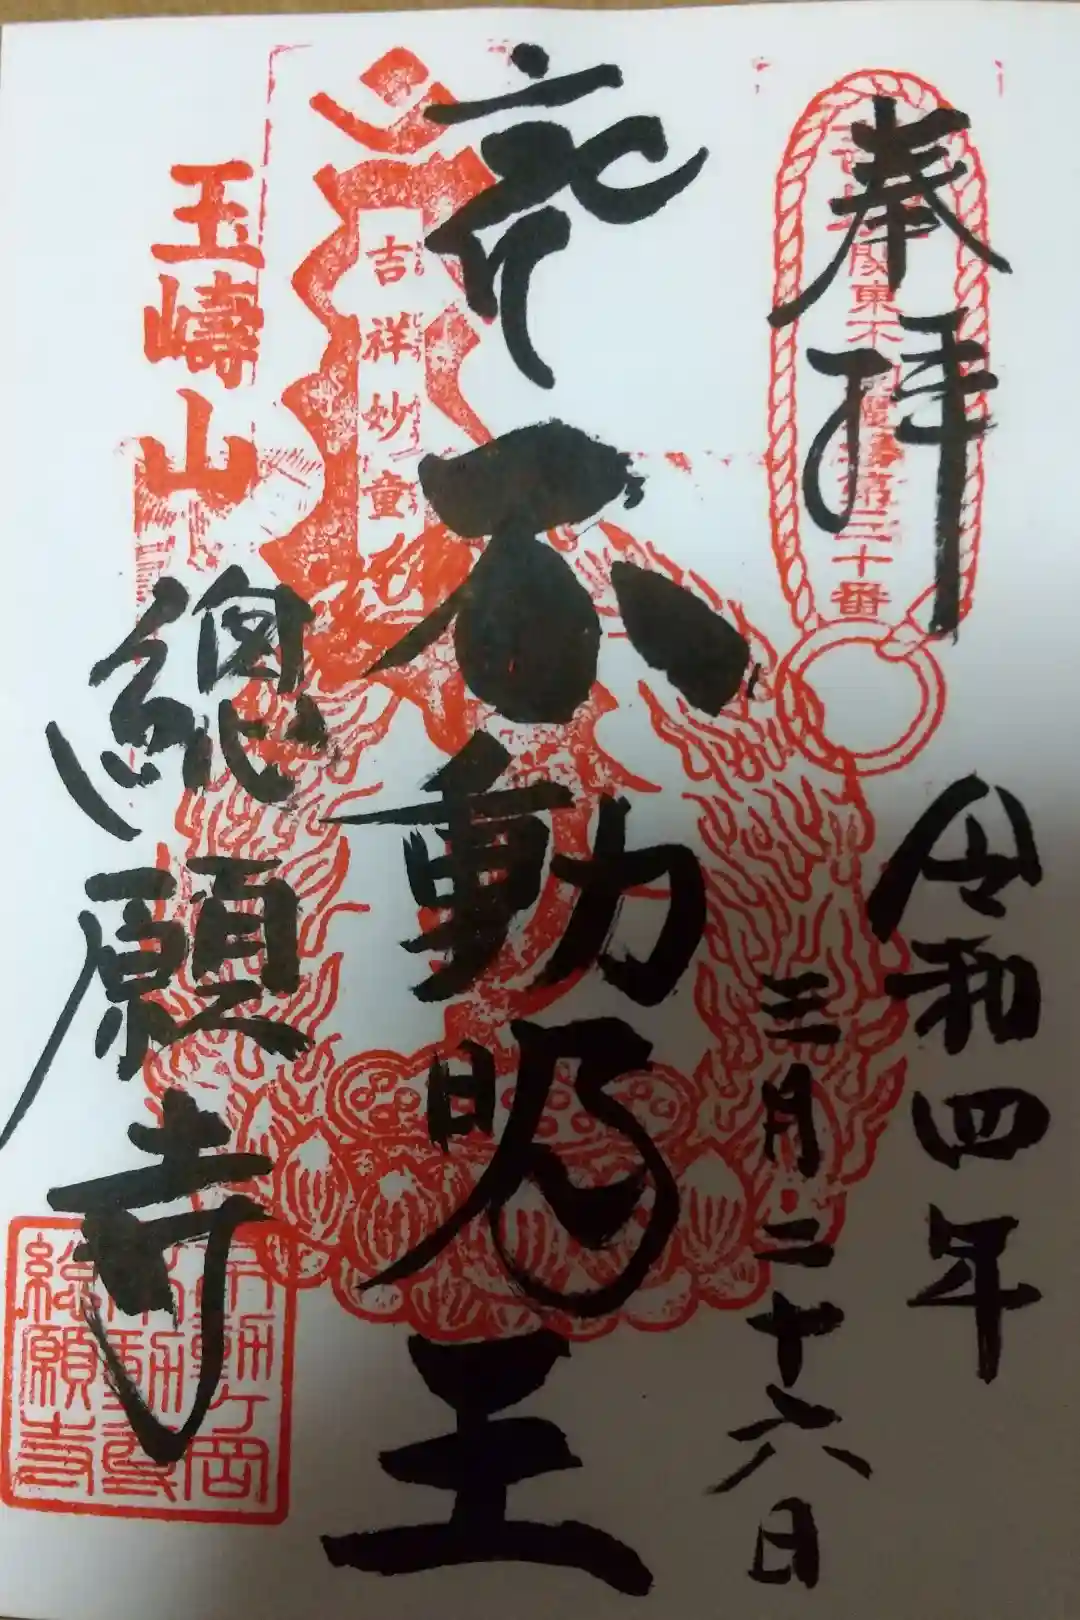 奉拝
関東不
第三十番
令和四年
三月二十六日
不動明王
吉祥妙童
玉嶹山
總願寺
不動ヶ岡
不動尊
總願寺